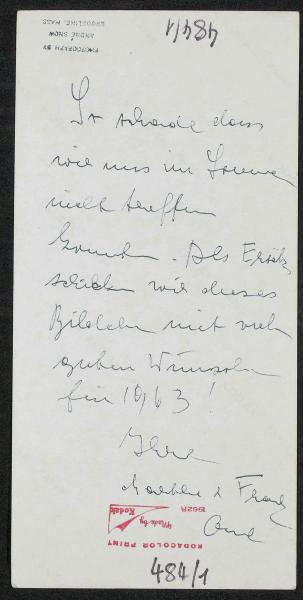 484/1
PHOTOGRAPH BY
ANDRÉ SNOW
BROOKLINE, MASS
Ist schade dass
wir uns im Sommer
nicht treffen
konnten. Als Ersatz
schicken wir dieses
Bildchen mit vielen
guten Wünschen
für 1963!
Ihre
& Franz
Made by
Kodak
1962R
KODACOLOR PRINT
484/1